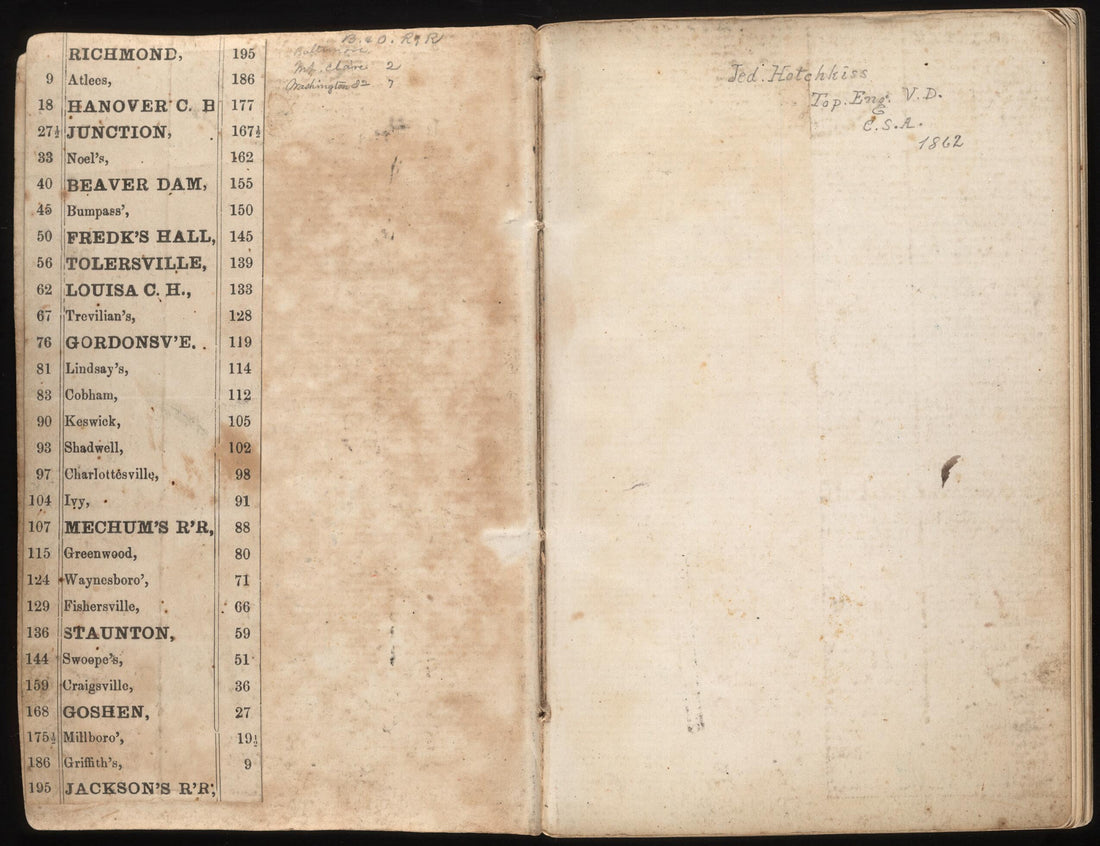 RICHMOND, 195
9 Atlees, 186
18 HANOVER C. B 177
27½ JUNCTION, 167½
33 Noel's, 162
40 BEAVER DAM, 155
45 Bumpass', 150
50 FREDK'S HALL, 145
56 TOLERSVILLE, 139
62 LOUISA C. H., 133
67 Trevilian's, 128
76 GORDONSV'E. 119
81 Lindsay's, 114
83 Cobham, 112
90 Keswick, 105
93 Shadwell, 102
97 Charlottesville, 98
104 Ivy, 91
107 MECHUM'S R'R, 88
115 Greenwood, 80
124 Waynesboro', 71
129 Fishersville, 66
136 STAUNTON, 59
144 Swoope's, 51
159 Craigsville, 36
168 GOSHEN, 27
175½ Millboro', 19½
186 Griffith's, 9
195 JACKSON'S R'R,
B & O. R, R
Baltimore
Mt. Clare 2
Washington 7
Jed. Hotchkiss
Top. Eng. V.D.
C.S.A.
1862